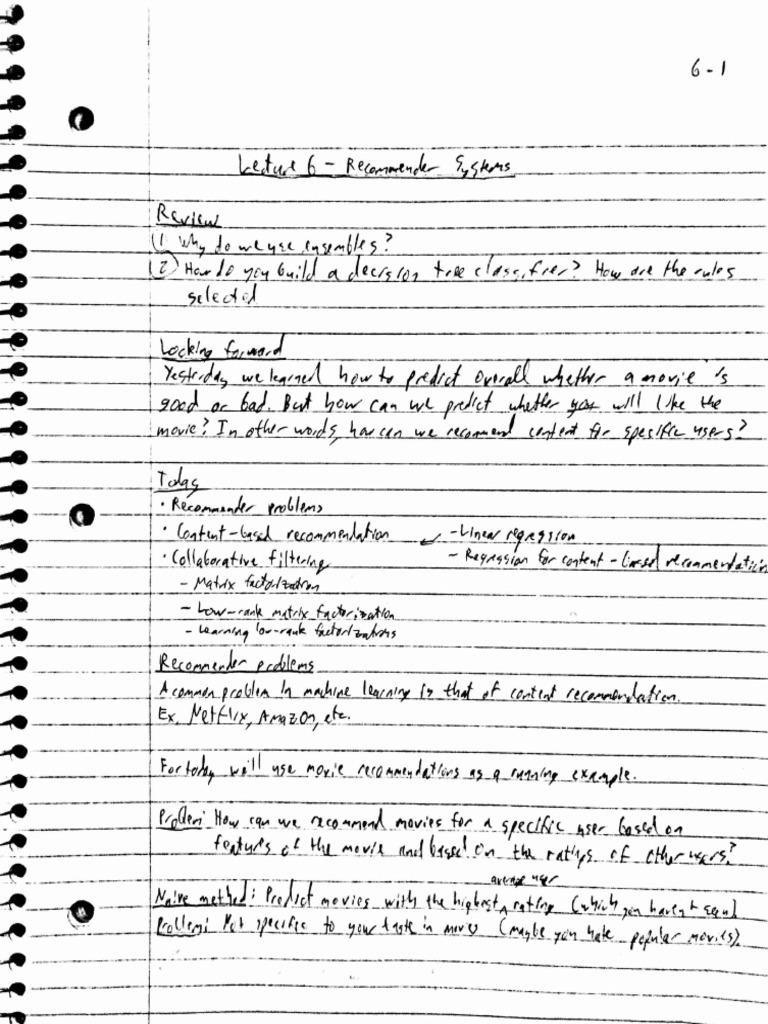 6-1
Lecture 6 - Recommender Systems
Review
1. Why do we use ensembles?
2. How do you build a decision tree classifier? How are the rules
selected
Looking forward
Yesterday we learned how to predict overall whether a movie is
good or bad. But how can we predict whether you will like the
movie? In other words, how can we recommend content for specific users?
Today
· Recommender problems
· Content-based recommendation - Linear regression
· Collaborative filtering - Regression for content-based recommendation
- Matrix factorization
- Low-rank matrix factorization
- Learning low-rank factorizations
Recommender problems
A common problem in machine learning is that of content recommendation.
Ex, Netflix, Amazon, etc.
For today will use movie recommendations as a running example.
Problem: How can we recommend movies for a specific user based on
features of the movie and based on the ratings of other users?
average user
Naive method: Predict movies with the highest rating (which you haven't seen)
Problem: Not specific to your taste in movies (maybe you hate popular movies)